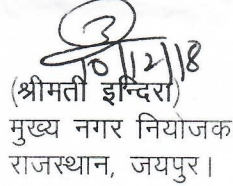 10/12/18
(श्रीमती इन्दिरा)
मुख्य नगर नियोजक
राजस्थान, जयपुर।